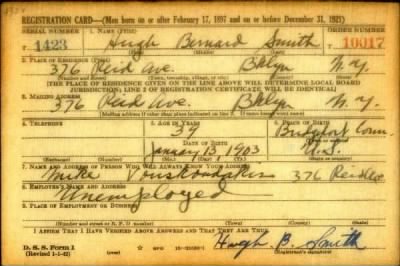 REGISTRATION CARD—(Men born on or after February 17, 1897 and on or before December 31, 1921)
SERIAL NUMBER 1. NAME (Print) ORDER NUMBER
T 1423 Hugh Bernard Smith 10017
(First) (Middle) (Last)
2. PLACE OF RESIDENCE (Print)
376 Reid Ave. Bklyn N.Y.
(Number and street) (Town, township, village, or city) (County) (State)
[THE PLACE OF RESIDENCE GIVEN ON THE LINE ABOVE WILL DETERMINE LOCAL BOARD
JURISDICTION; LINE 2 OF REGISTRATION CERTIFICATE WILL BE IDENTICAL]
3. MAILING ADDRESS
376 Reid Ave. Bklyn N.Y.
[Mailing address if other than place indicated on line 2. If same insert word same]
4. TELEPHONE 5. AGE IN YEARS 6. PLACE OF BIRTH
39 Conn.
DATE OF BIRTH
January 13 1903 U.S.
(Exchange) (Number) (Mo.) (Day) (Yr.) (State or country)
7. NAME AND ADDRESS OF PERSON WHO WILL ALWAYS KNOW YOUR ADDRESS
Mike 376 Reid Ave
8. EMPLOYER'S NAME AND ADDRESS
Unemployed
9. PLACE OF EMPLOYMENT OR BUSINESS
(Number and street or R. F. D. number) (Town) (County) (State)
I AFFIRM THAT I HAVE VERIFIED ABOVE ANSWERS AND THAT THEY ARE TRUE.
D. S. S. Form 1
(Revised 1-1-42) (over) Hugh B. Smith
(Registrant's signature)